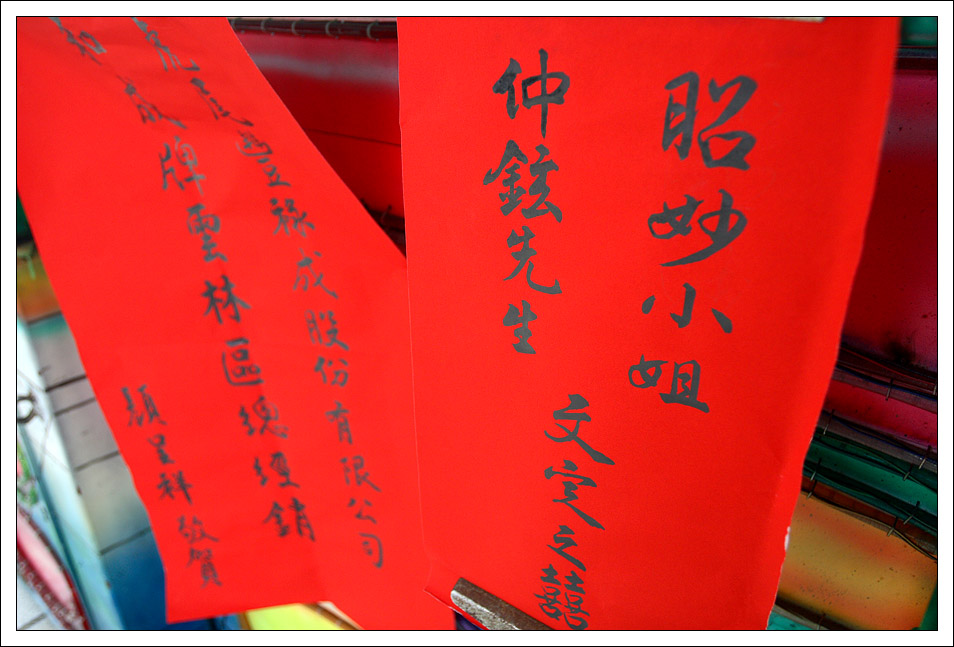 昭妙小姐
仲鉉先生
文定之囍
豐祿成股份有限公司
牌雲林區總經銷
顏呈祥敬賀